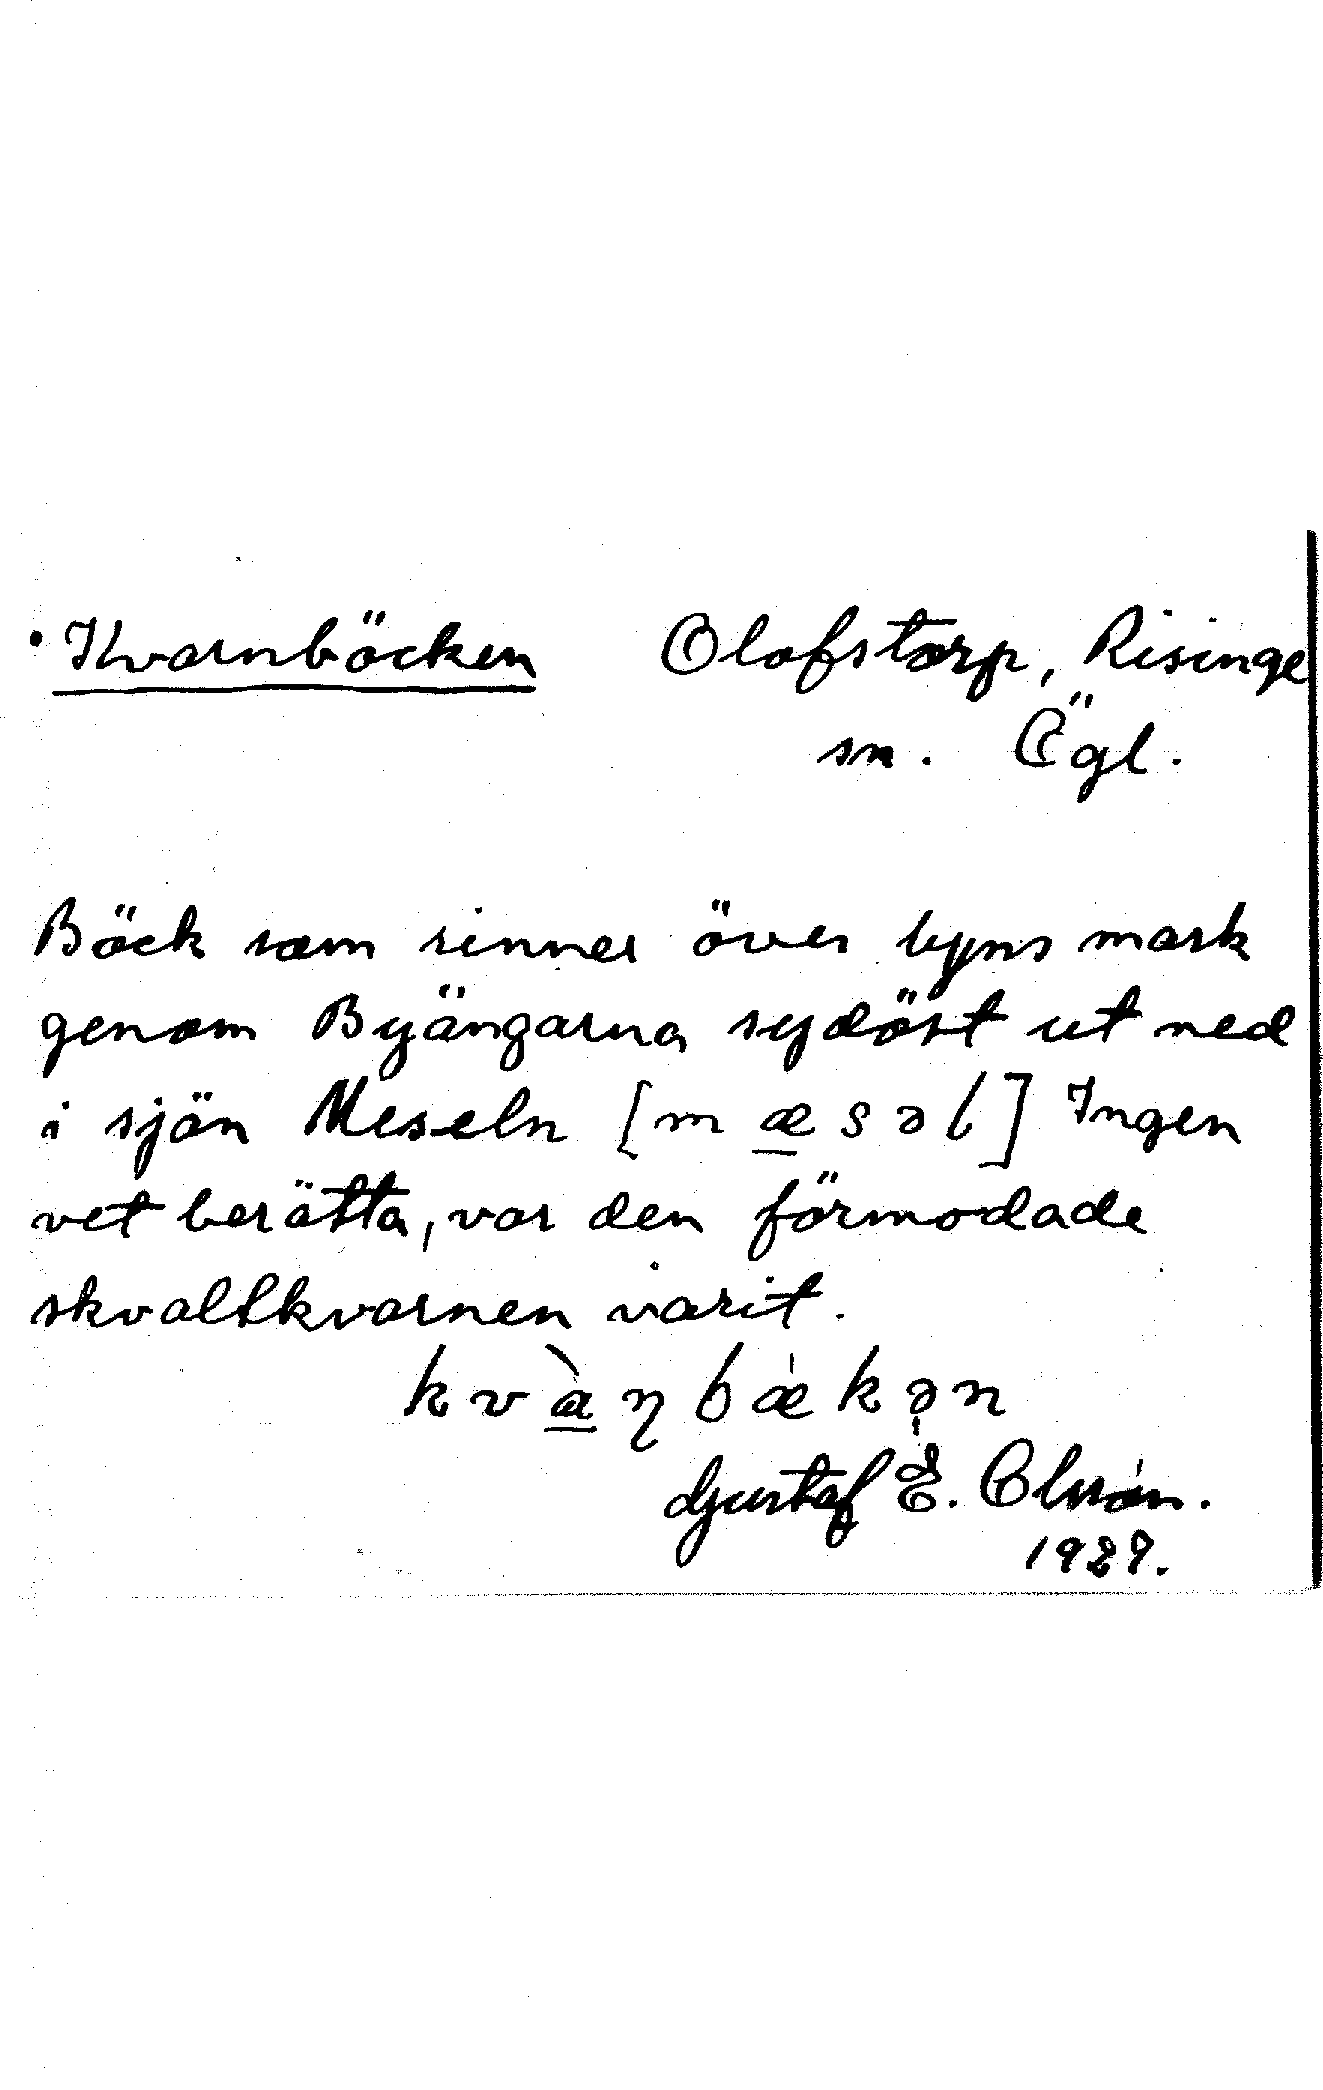 Kvarnbäcken Olofstorp, Risinge
sn. Ögl.
Bäck som rinner över byns mark
genom Byängarna sydöst ut ned
i sjön Meseln [mæsəl] Ingen
vet berätta, var den förmodade
skvaltkvarnen varit.
kvàɳbækən
Gustaf E. Olsson.
1929.